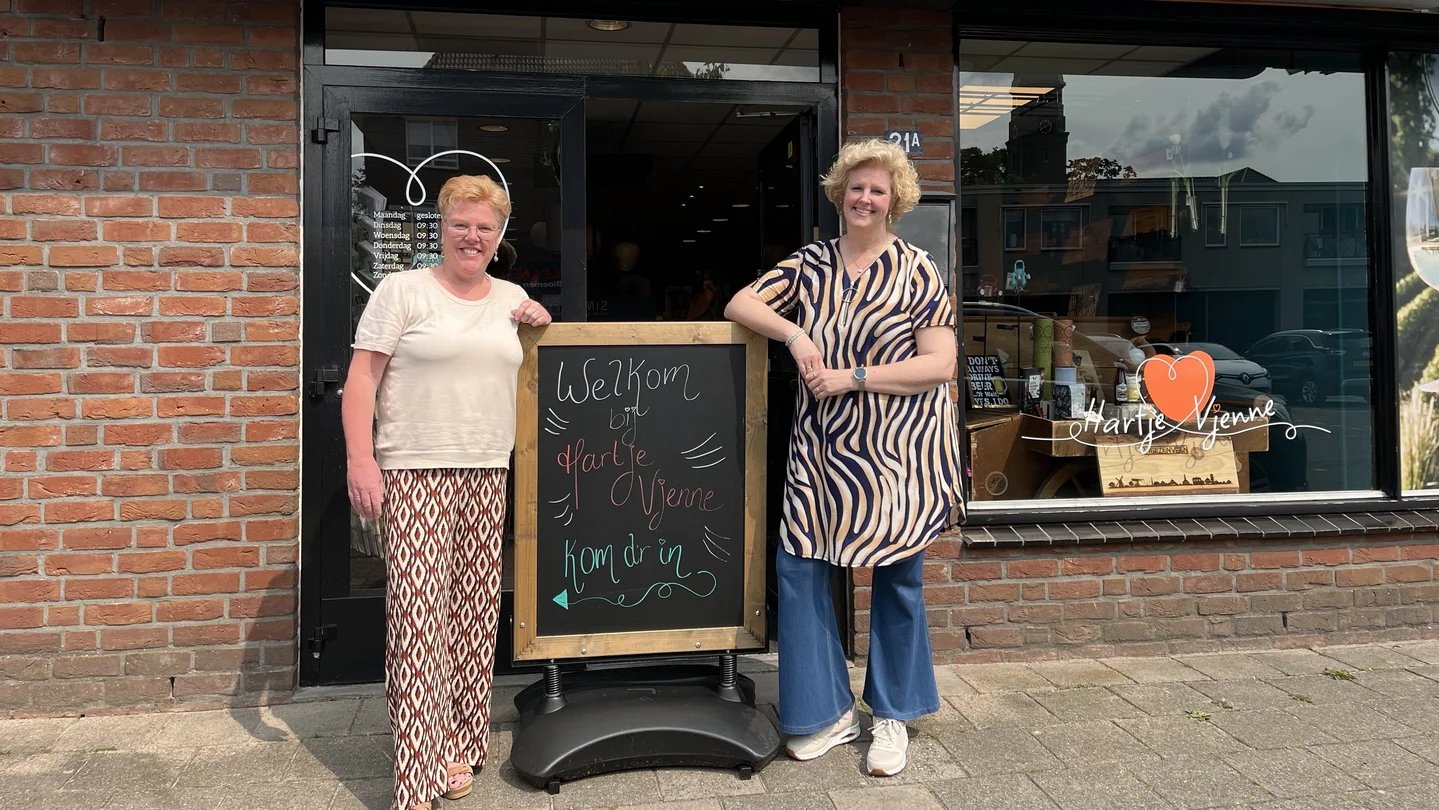 21A
Maandag gesloten
Dinsdag 09:30
Woensdag 09:30
Donderdag 09:30
Vrijdag 09:30
Zaterdag 09:
Zon
Bloemen
Welkom
bij
Hartje
Vjenne
Kom d'r in
DON'T
ALWAYS
DRINK
BEER
YES, I DO
Hartje Vjenne